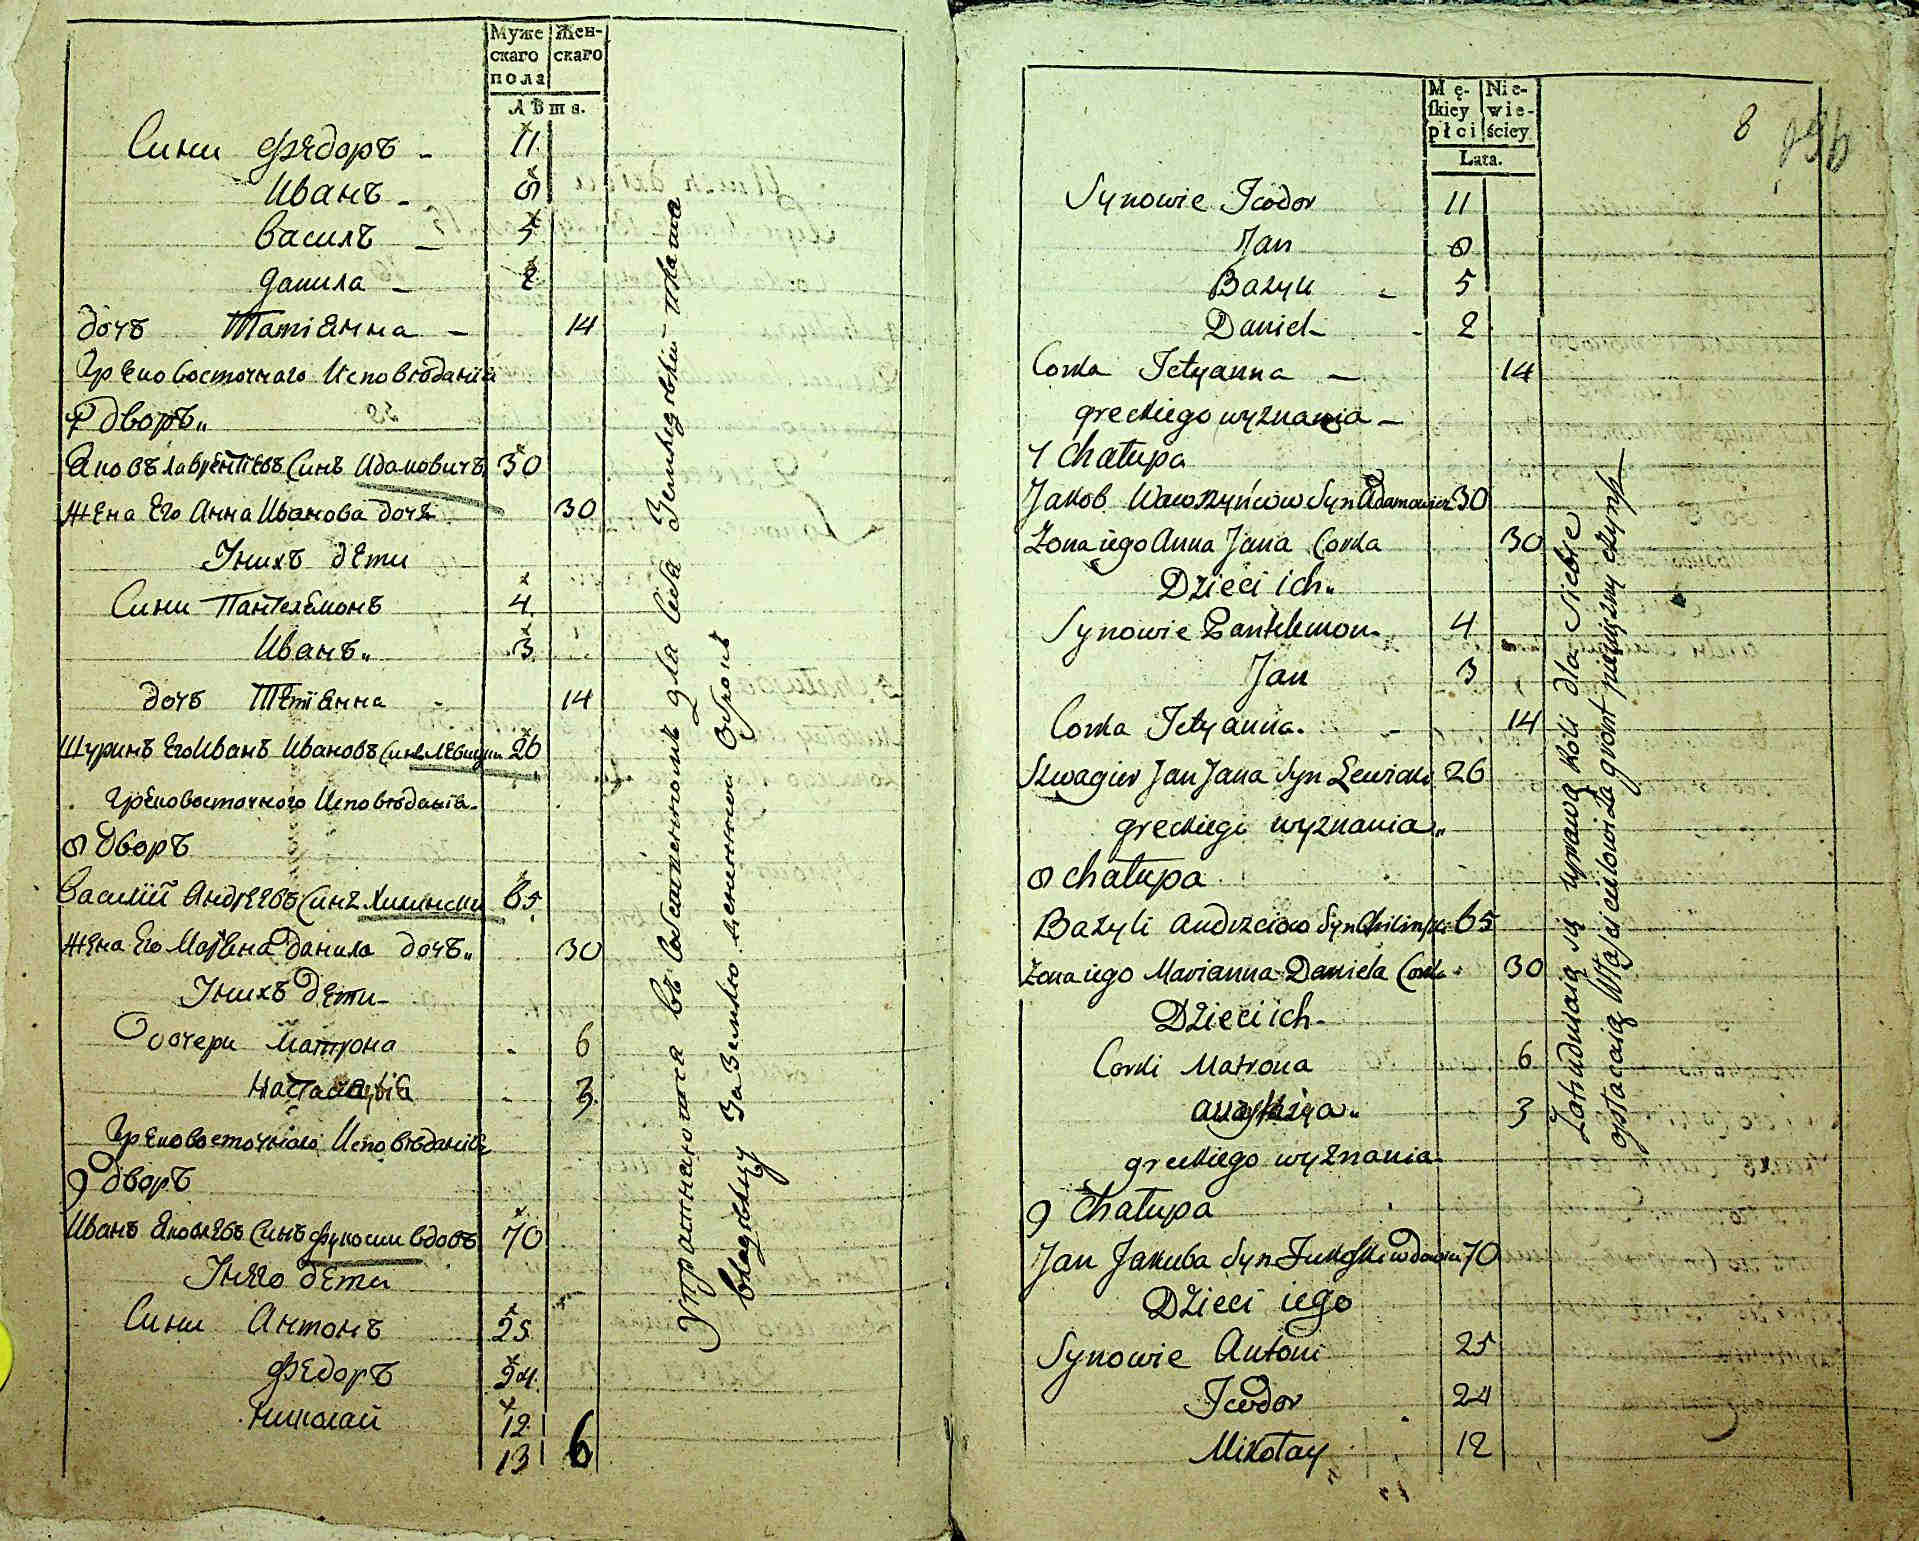 Муже
скаго
пола
Жен-
скаго
Лѣта.
Сини Федоръ - 11
Иванъ - 8
Василъ - 5
Данила - 2
дочъ Татіанна - 14
Грековосточнаго Исповѣданія
7 дворъ„
Яковъ Лаврентіевъ Синъ Адамовичъ 30
Жена Его Анна Иванова дочъ 30
Унихъ дети
Сини Пантелемонъ 4
Иванъ„ 3
дочъ Тетіанна 14
Шуринъ Его Иванъ Ивановъ Синъ 26
Грековосточного Исповѣданія
8 дворъ
Василій Андреевъ Синъ Хилински 65
Жена Его Маріена Данила дочъ„ 30
Унихъ дети
Дочери Матрона - 6
Настасія - 3
Грековосточного Исповѣданія
9 дворъ
Иванъ Яковлевъ Синъ вдовъ 70
Унего дети
Сини Антонъ 25
Федоръ 24
Николай 12
13 6
Упражнаются въ для себа
владѣлцу за землю оброкъ
Mę-
skiey
płci
Nie-
wie-
ściey
Lata.
8
Synowie Teodor 11
Jan 8
Bazyli - 5
Daniel - 2
Corka Tetyanna - 14
greckiego wyznania -
7 Chałupa
Jakob Wawrzyńcow Syn Adamowicz 30
Żona iego Anna Jana Corka 30
Dzieci ich„
Synowie Pantelemon 4
Jan 3
Corka Tetyanna. 14
Szwagier Jan Jana Syn 26
greckiego wyznania„
8 chałupa
Bazyli Andrzeiow Syn Chilinski 65
Żona iego Marianna Daniela Corka 30
Dzieci ich
Corki Matrona 6
3
greckiego wyznania
9 Chałupa
Jan Jakuba Syn 70
Dzieci iego
Synowie Antoni 25
Teodor 24
Mikołay 12
Zatrudniaią się uprawą Roli dla siebie
opłacaią Właścicielowi za gront pieniężny czynsz